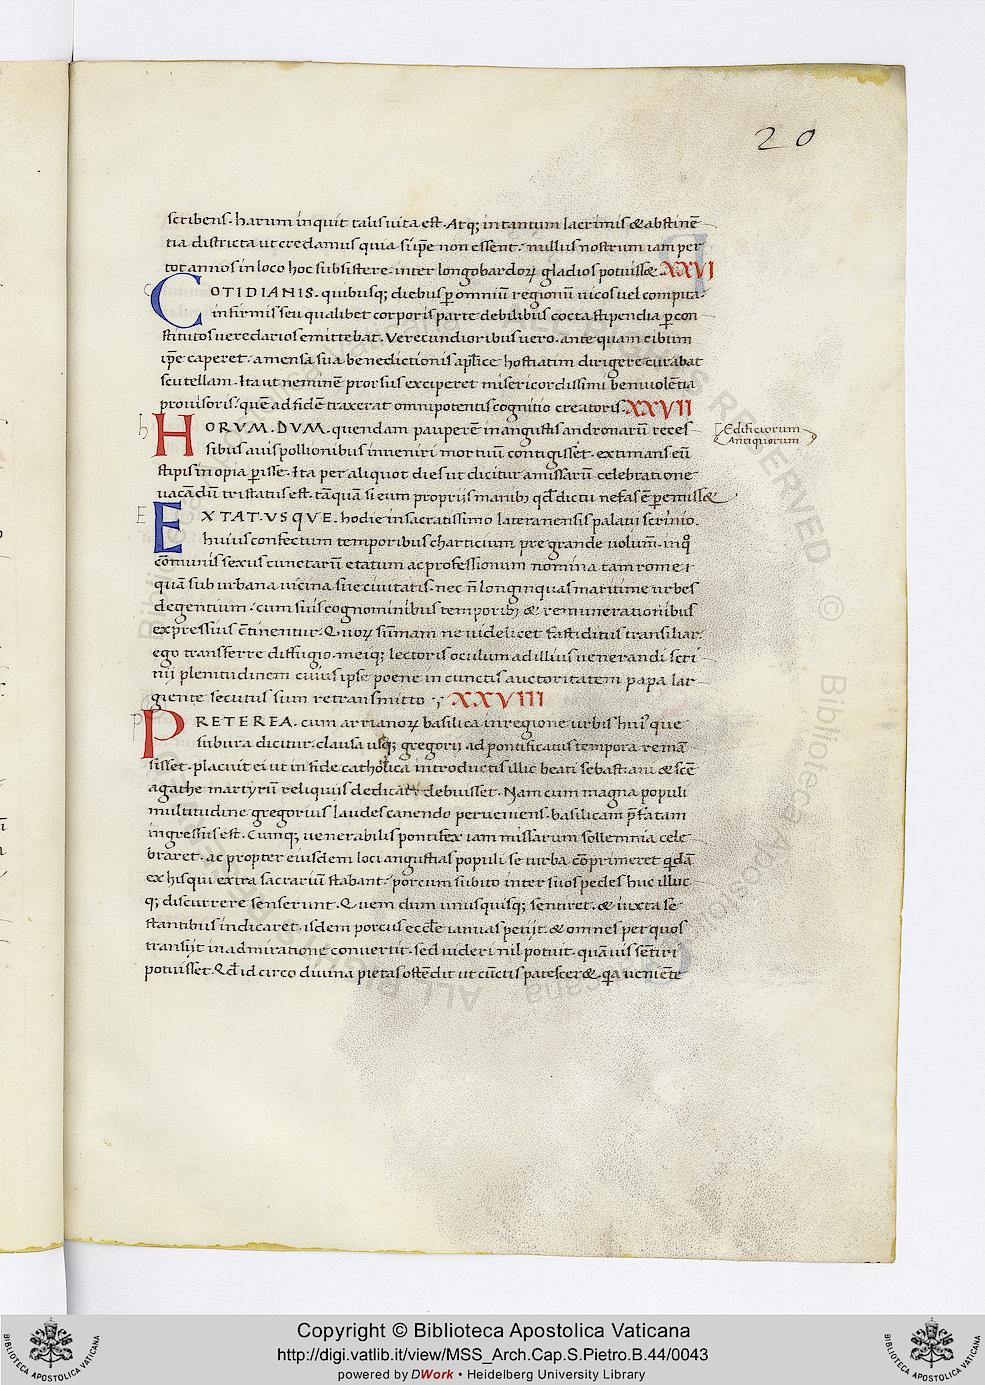 20
scribens. harum inquit talis uita est. Atq; in tantum lacrimis & abstinē
tia districta ut credamus quia si ipse non essent: nullus nostrum iam per
tot annos in loco hoc subsistere inter longobardoꝝ gladios potuiss&. XXVI
COTIDIANIS. quibusq; diebus ꝑ omniū regionū uicos uel compita.
infirmis seu qualibet corporis parte debilibus cocta stipendia ꝑ con
stitutos ueredarios emittebat. Verecundioribus uero. ante quam cibum
ip̄e caperet: a mensa sua benedictionis apl̄ice hostiatim dirigere curabat
scutellam. Ita ut neminē prorsus exciperet misericordissimi beniuolētia
prouisoris: quē ad fidē traxerat omnipotentis cognitio creatoris. XXVII
HORVM. DVM. quendam pauperē in angustis andronarū reces
Edificiorum
Antiquorum
sibus a uispollionibus inueniri mortuū contigisset. extimans eū
stipis inopia ꝑisse. Ita per aliquot dies ut dicitur a missarū celebratione
uacādū tristatus est. tāquā si eum proprijs manibꝫ qd̄ dictu nefas ē ꝑemiss&
EXTAT. VSQVE. hodie in sacratissimo lateranensis palatii scrinio.
huius confectum temporibus charticium pregrande uolum̄. in q̊
cōmunis sexus cunctarū etatum ac professionum nomina tam rome
quā suburbana uicina sue ciuitatis. nec n̄ longinquas maritime urbes
degentium. cum suis cognominibus temporibꝫ & remunerationibus
expressius ɔtinentur. Quoꝝ sūmam ne uidelicet fastiditus transiliar.
ego transferre diffugio. meiq; lectoris oculum ad illius uenerandi scri
nij plenitudinem cuius ipse poene in cunctis auctoritatem papa lar
giente secutus sum retransmitto. XXVIII
PRETEREA. cum arrianoꝝ basilica in regione urbis hui' que
subura dicitur. clausa usq; gregorij ad pontificatus tempora remā
sisset. placuit ei ut in fide catholica introductis illic beati sebastiani & scē
agathe martyrū reliquiis dedicari debuisset. Nam cum magna populi
multitudine gregorius laudes canendo perueniens. basilicam p̄fatam
ingressus est. Cumq; uenerabilis pontifex iam missarum sollemnia cele
braret. ac propter eiusdem loci angustias populi se turba cōprimeret qdā
ex his qui extra sacrariū stabant: porcum subito inter suos pedes huc illuc
q; discurrere senserunt. Quem dum unusquisq; sentiret. & iuxta se
stantibus indicaret. isdem porcus eccl̄e ianuas petijt. & omnes per quos
transijt in admiratione conuertit. sed uideri nil potuit. quāuis sētiri
potuisset. Qd̄ idcirco diuina pietas ostēdit ut cūctis patescer&. qa ueniēte
Copyright © Biblioteca Apostolica Vaticana
http://digi.vatlib.it/view/MSS_Arch.Cap.S.Pietro.B.44/0043
powered by DWork • Heidelberg University Library